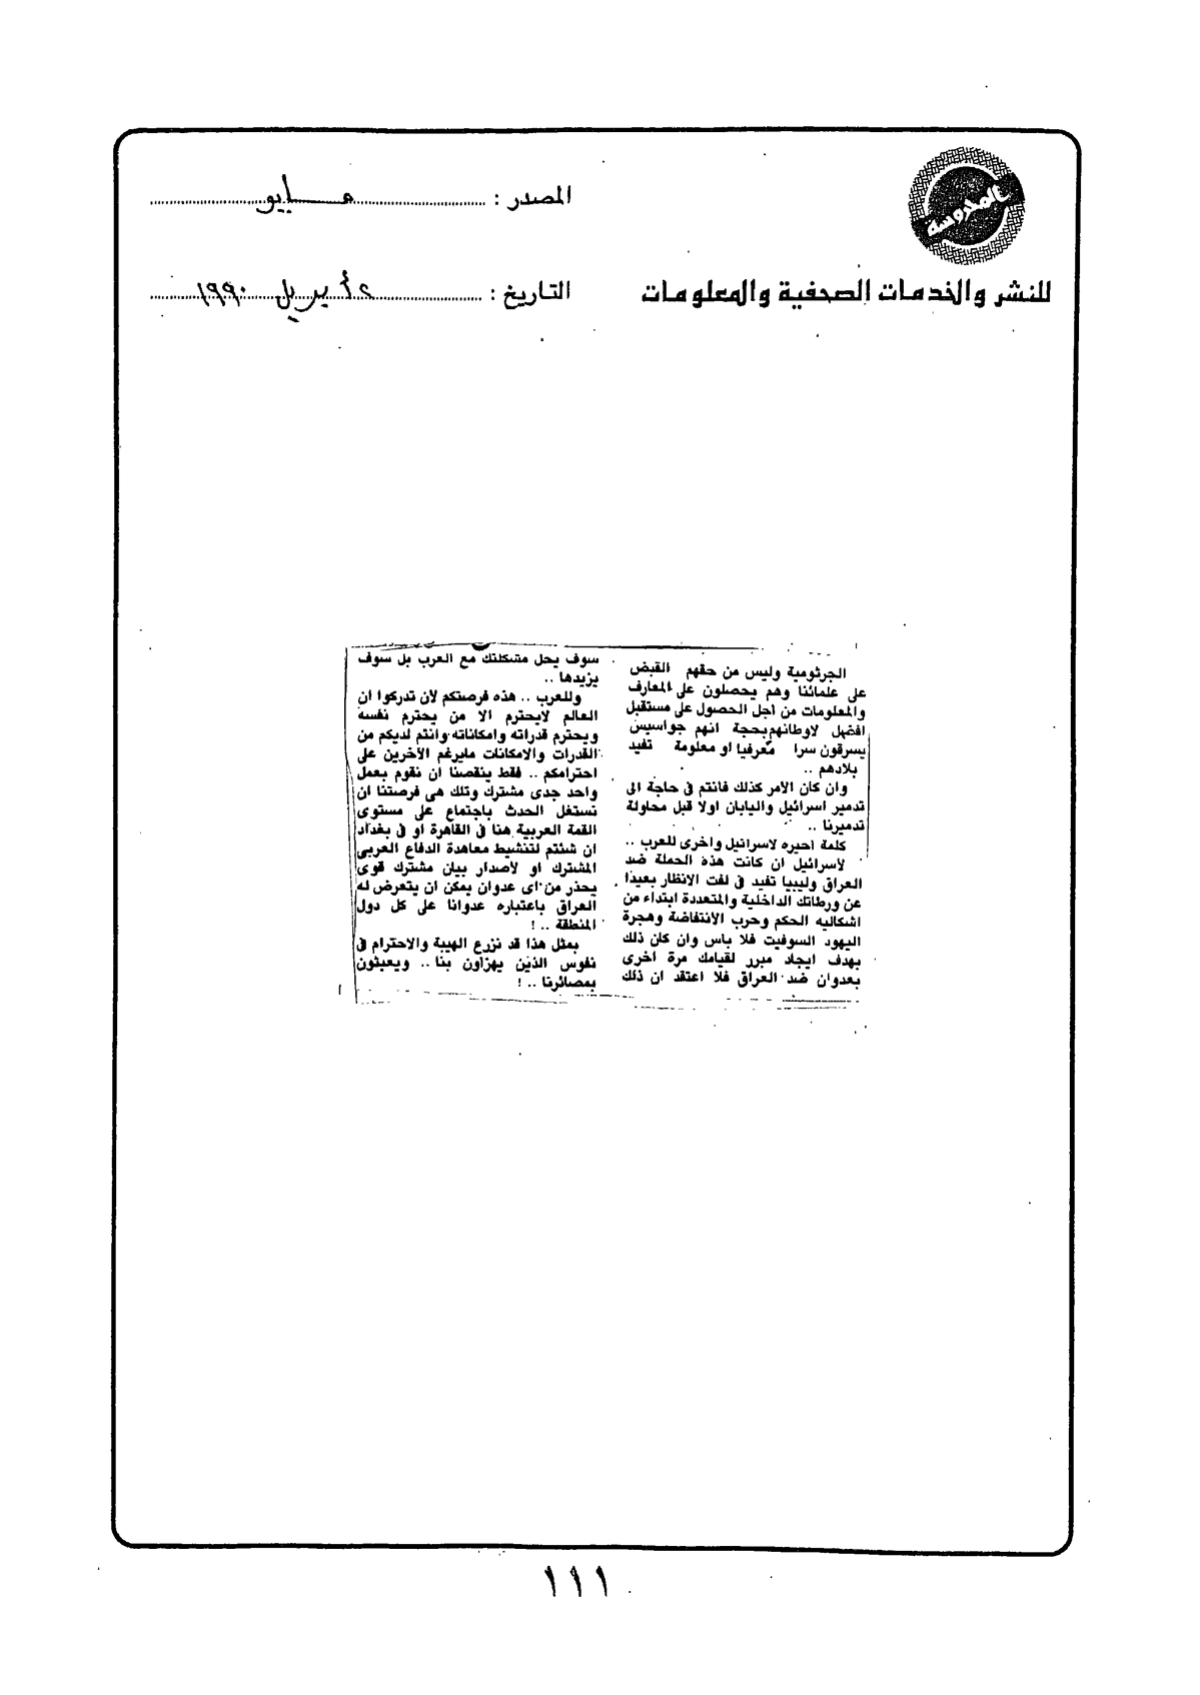 المحروسة
للنشر والخدمات الصحفية والمعلومات
المصدر : مايو
التاريخ : ٢ أبريل ١٩٩٠
الجرثومية وليس من حقهم القبض
على علمائنا وهم يحصلون على المعارف
والمعلومات من اجل الحصول على مستقبل
افضل لاوطانهم بحجة انهم جواسيس
يسرقون سرا معرفيا او معلومة تفيد
بلادهم ..
وان كان الامر كذلك فانتم فى حاجة الى
تدمير اسرائيل واليابان اولا قبل محاولة
تدميرنا ..
كلمة اخيره لاسرائيل واخرى للعرب ..
لاسرائيل ان كانت هذه الحملة ضد
العراق وليبيا تفيد فى لفت الانظار بعيدا
عن ورطاتك الداخلية والمتعددة ابتداء من
اشكاليه الحكم وحرب الانتفاضة وهجرة
اليهود السوفيت فلا باس وان كان ذلك
بهدف ايجاد مبرر لقيامك مرة اخرى
بعدوان ضد العراق فلا اعتقد ان ذلك
سوف يحل مشكلتك مع العرب بل سوف
يزيدها ..
وللعرب .. هذه فرصتكم لان تدركوا ان
العالم لايحترم الا من يحترم نفسه
ويحترم قدراته وامكاناته وانتم لديكم من
القدرات والامكانات مايرغم الآخرين على
احترامكم .. فقط ينقصنا ان نقوم بعمل
واحد جدى مشترك وتلك هى فرصتنا ان
نستغل الحدث باجتماع على مستوى
القمة العربية هنا فى القاهرة او فى بغداد
ان شئتم لتنشيط معاهدة الدفاع العربى
المشترك او لاصدار بيان مشترك قوى
يحذر من اى عدوان يمكن ان يتعرض له
العراق باعتباره عدوانا على كل دول
المنطقة .. !
بمثل هذا قد نزرع الهيبة والاحترام فى
نفوس الذين يهزاون بنا .. ويعبثون
بمصائرنا .. !
١١١